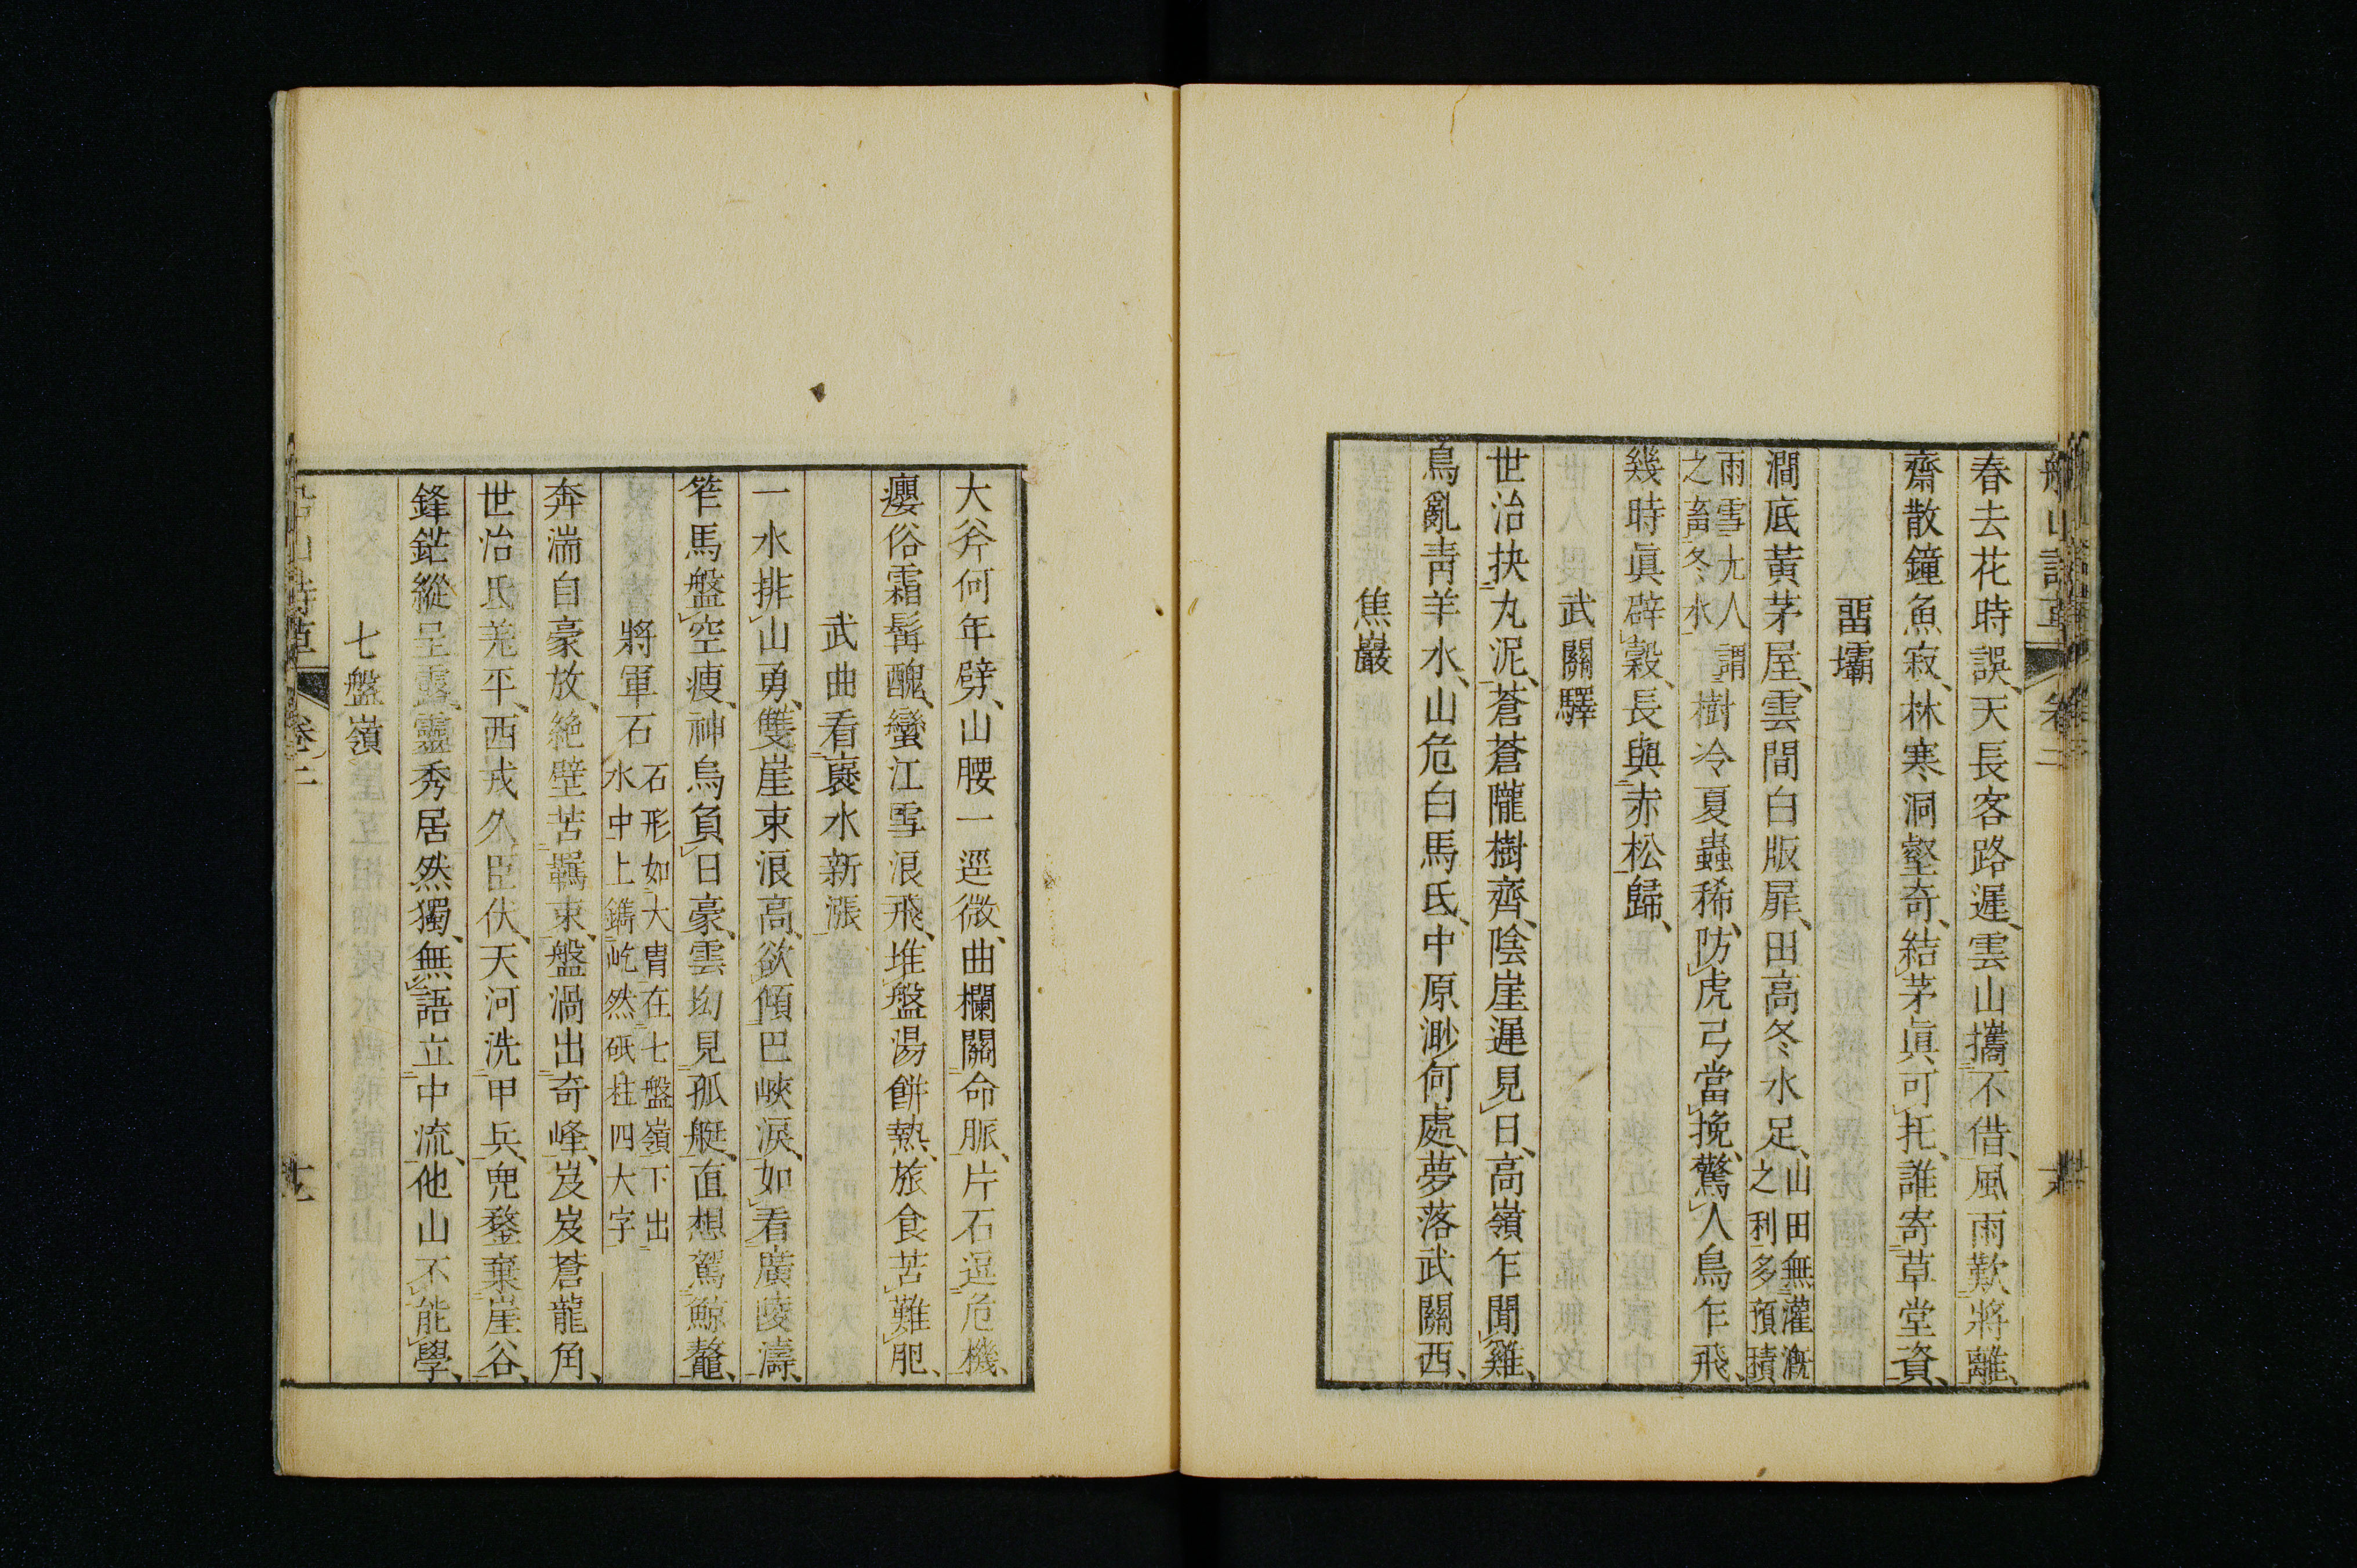 春去花時誤、天長客路遲、雲山攜不借、風雨歎將離、
齋散鐘魚寂、林寒洞壑奇、結茅眞可托、誰寄草堂資、
畱壩
澗底黃茅屋、雲間白版扉、田高冬水足、山田無灌漑
之利多預積
雨雪尢人謂
之畜冬水樹冷夏蟲稀、防虎弓當挽、驚人鳥乍飛、
幾時眞辟穀、長與赤松歸、
武關驛
世治抉丸泥、蒼蒼隴樹齊、陰崖遲見日、高嶺乍聞雞、
鳥亂靑羊水、山危白馬氐、中原渺何處、夢落武關西、
焦巖
大斧何年劈、山腰一逕微、曲欄關命脈、片石逗危機、
癭俗霜髯醜、蠻江雪浪飛、堆盤湯餅熱、旅食苦難肥、
武曲看襃水新漲
一水排山勇、雙崖束浪高、欲傾巴峽淚、如看廣陵濤、
笮馬盤空瘦、神烏負日豪、雲坳見孤艇、直想駕鯨鼇、
將軍石石形如大冑在七盤嶺下出
水中上鐫屹然砥柱四大字
奔湍自豪放、絶壁苦羈束、盤渦出奇峰、岌岌蒼龍角、
世治氐羌平、西戎久臣伏、天河洗甲兵、兜鍪棄崖谷、
鋒鋩縱呈露、靈秀居然獨、無語立中流、他山不能學、
七盤嶺